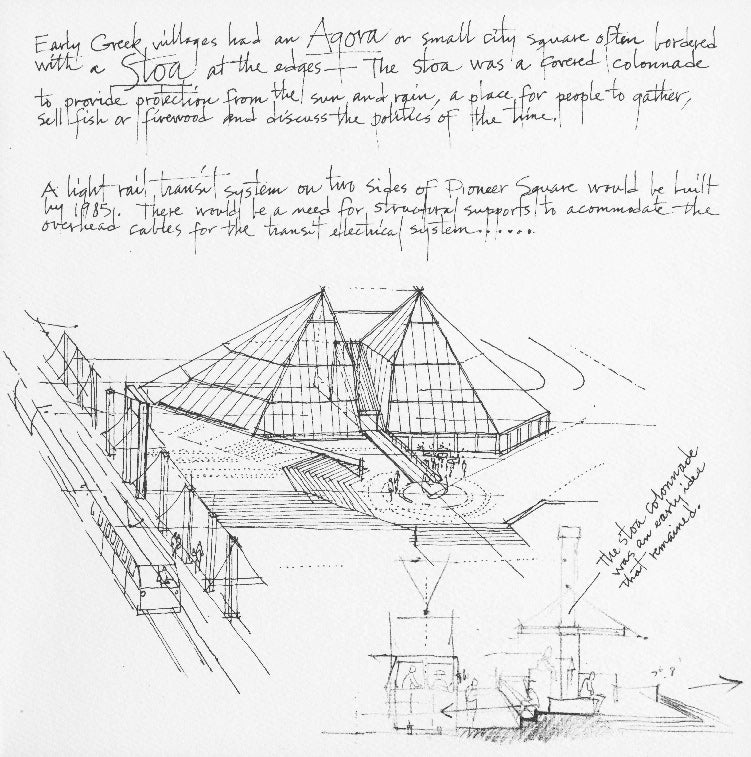 Early Greek villages had an Agora or small city square often bordered
with a Stoa at the edges — The stoa was a covered colonnade
to provide protection from the sun and rain, a place for people to gather,
sell fish or firewood and discuss the politics of the time.
A light rail transit system on two sides of Pioneer Square would be built
by 1985. There would be a need for structural supports to acommodate the
overhead cables for the transit electrical system......
The stoa colonnade
was an early idea
that remained.